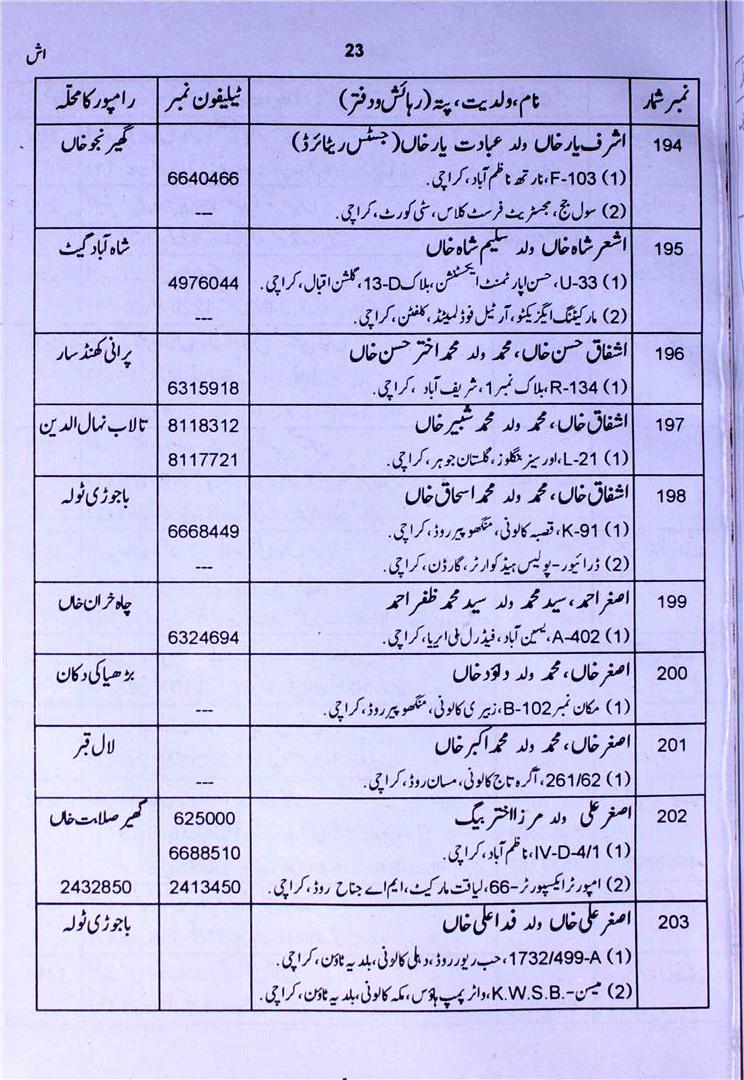 اش
23
نمبر شمار	نام، ولدیت، پتہ (رہائش و دفتر)	ٹیلیفون نمبر	رامپور کا محلّہ
194	اشرف یار خاں ولد عبادت یار خاں (جسٹس ریٹائرڈ)	گھیر نجو خاں
(1) F-103، نارتھ ناظم آباد، کراچی۔	6640466
(2) سول جج، مجسٹریٹ فرسٹ کلاس، سٹی کورٹ، کراچی۔	---
195	اشعر شاہ خاں ولد سلیم شاہ خاں	شاہ آباد گیٹ
(1) U-33، حسن اپارٹمنٹ ایکسٹنشن، بلاک 13-D، گلشن اقبال، کراچی۔	4976044
(2) مارکیٹنگ ایگزیکٹو، آرٹیل فوڈ لمیٹڈ، کلفٹن، کراچی۔	---
196	اشفاق حسن خاں، محمد ولد محمد اختر حسن خاں	پرانی کھنڈسار
(1) R-134، بلاک نمبر 1، شریف آباد، کراچی۔	6315918
197	اشفاق خاں، محمد ولد محمد شبیر خاں	8118312	تالاب نہال الدین
(1) L-21، اورسیز بنگلوز، گلستان جوہر، کراچی۔	8117721
198	اشفاق خاں، محمد ولد محمد اسحاق خاں	باجوڑی ٹولہ
(1) K-91، قصبہ کالونی، منگھو پیر روڈ، کراچی۔	6668449
(2) ڈرائیور - پولیس ہیڈ کوارٹر، گارڈن، کراچی۔	---
199	اصغر احمد، سید محمد ولد سید محمد ظفر احمد	چاہ خزان خاں
(1) A-402، یسین آباد، فیڈرل بی ایریا، کراچی۔	6324694
200	اصغر خاں، محمد ولد داؤد خاں	بڑھیا کی دکان
(1) مکان نمبر B-102، زبیری کالونی، منگھو پیر روڈ، کراچی۔	---
201	اصغر خاں، محمد ولد محمد اکبر خاں	لال قبر
(1) 261/62، آگرہ تاج کالونی، مسان روڈ، کراچی۔	---
202	اصغر علی ولد مرزا اختر بیگ	625000	گھیر صلابت خاں
(1) IV-D-4/1، ناظم آباد، کراچی۔	6688510
(2) امپورٹر ایکسپورٹر - 66، لیاقت مارکیٹ، ایم اے جناح روڈ، کراچی۔	2413450	2432850
203	اصغر علی خاں ولد فدا علی خاں	باجوڑی ٹولہ
(1) 1732/499-A، حب ریور روڈ، دہلی کالونی، بلدیہ ٹاؤن، کراچی۔
(2) میسن - K.W.S.B.، واٹر پمپ ہاؤس، مکہ کالونی، بلدیہ ٹاؤن، کراچی۔